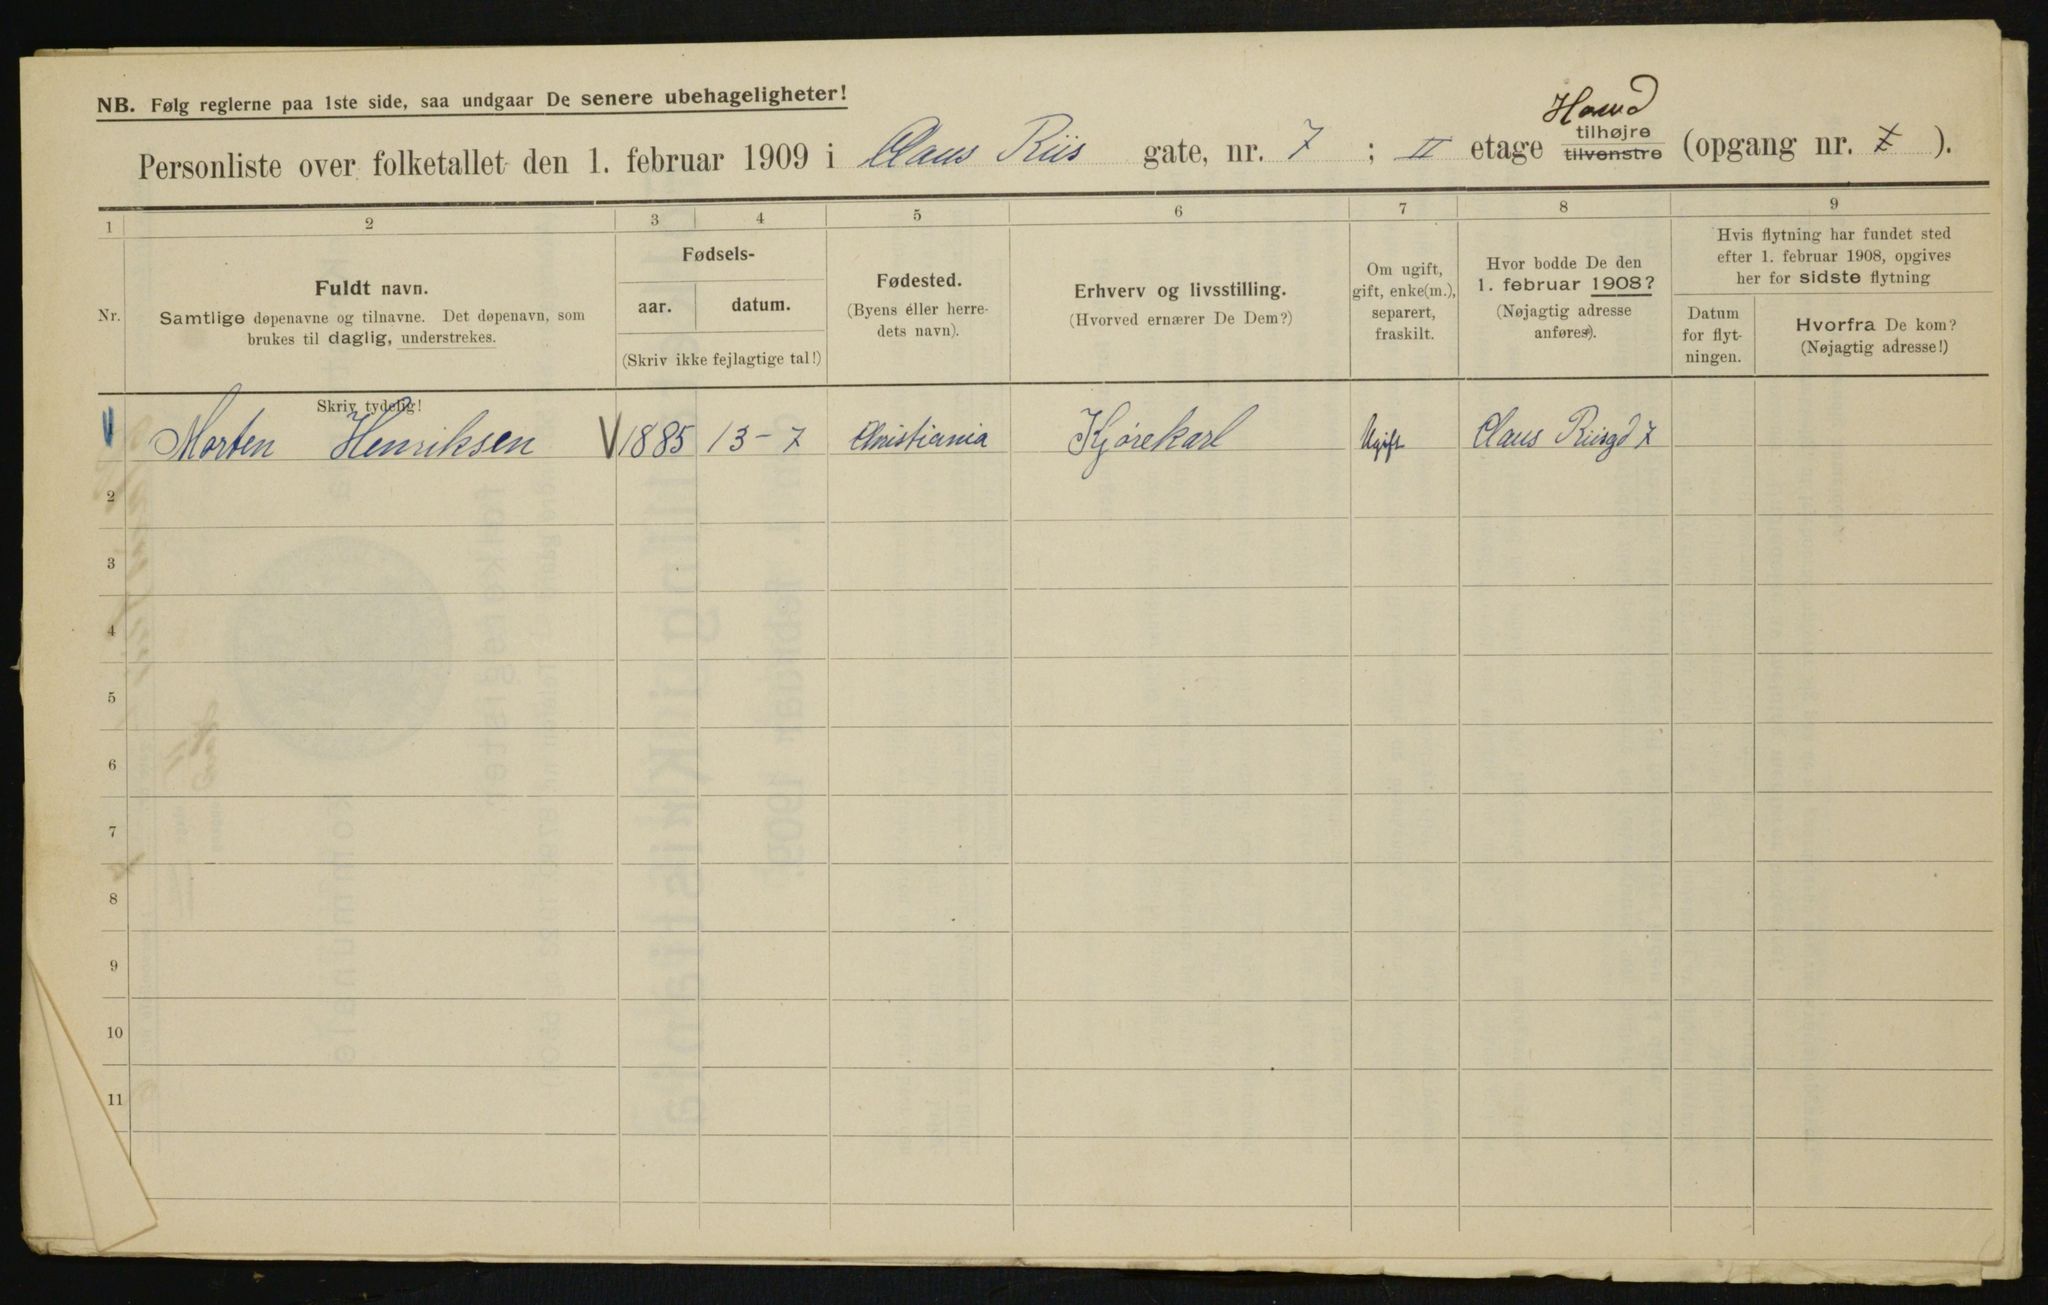 NB. Følg reglerne paa 1ste side, saa undgaar De senere ubehageligheter!
Personliste over folketallet den 1. februar 1909 i Claus Riis gate, nr. 7 ; II etage tilhøjre tilvenstre (opgang nr. ).
1 2 3 4 5 6 7 8 9
Nr.
Fuldt navn.
Samtlige døpenavne og tilnavne. Det døpenavn, som
brukes til daglig, understrekes.
Skriv tydelig!
Fødsels-
aar. datum.
(Skriv ikke fejlagtige tal!)
Fødested.
(Byens eller herre-
dets navn).
Erhverv og livsstilling.
(Hvorved ernærer De Dem?)
Om ugift,
gift, enke(m.),
separert,
fraskilt.
Hvor bodde De den
1. februar 1908?
(Nøjagtig adresse
anføres).
Hvis flytning har fundet sted
efter 1. februar 1908, opgives
her for sidste flytning
Datum
for flyt-
ningen.
Hvorfra De kom?
(Nøjagtig adresse!)
Morten Henriksen 1885 13-7 Christiania Kjørekarl Ugift Claus Riisgd 7
2
3
4
5
6
7
8
9
10
11